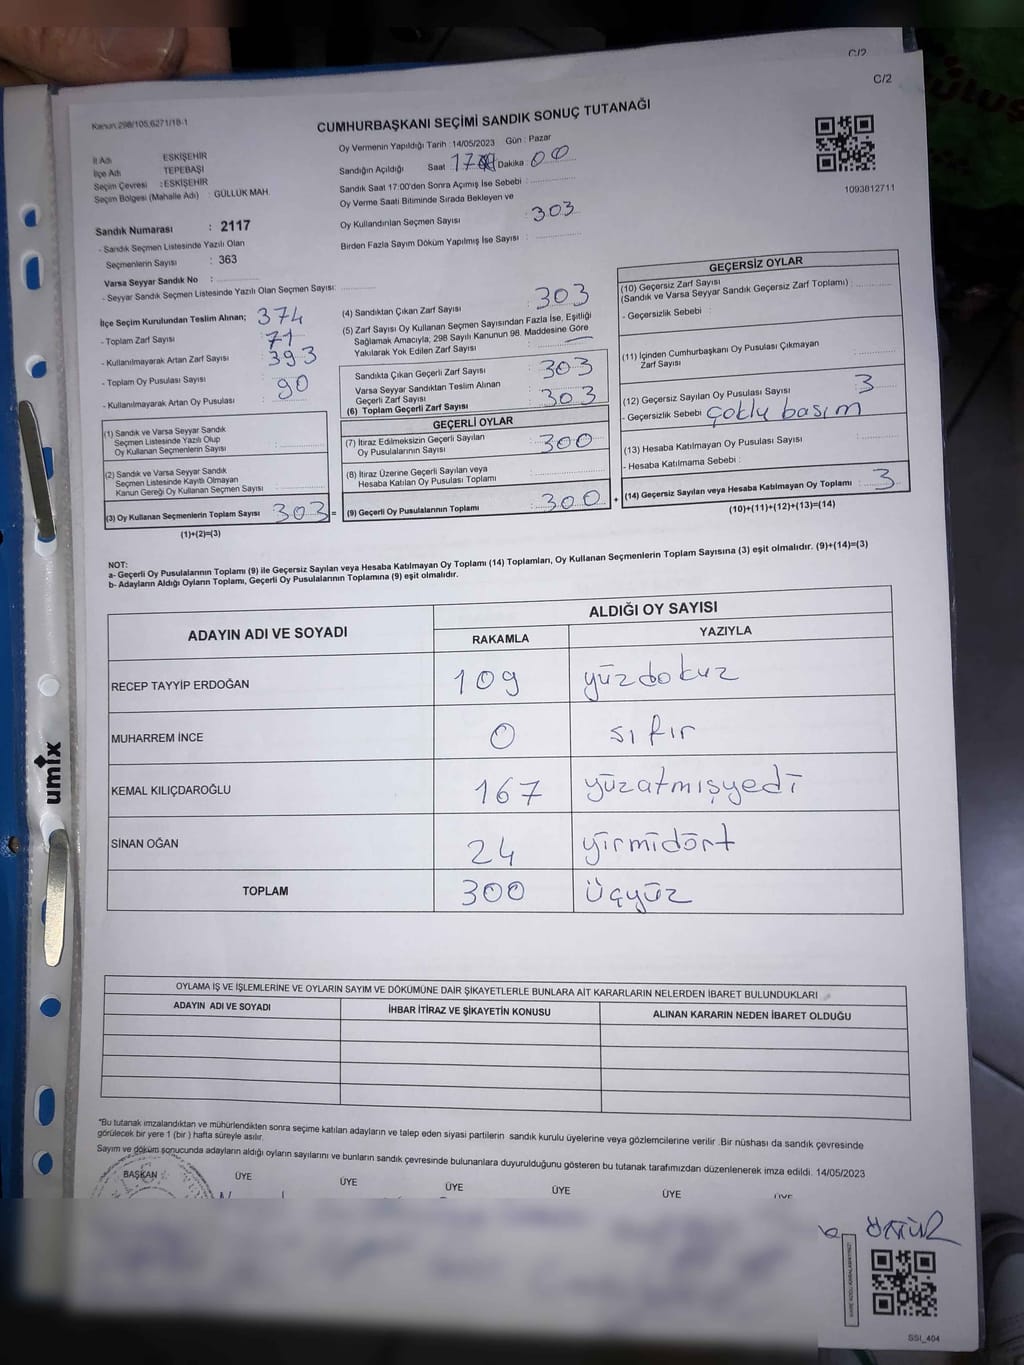 C/2
C/2
Kanun:298/105,6271/18-1
CUMHURBAŞKANI SEÇİMİ SANDIK SONUÇ TUTANAĞI
İl Adı ESKİŞEHİR
İlçe Adı TEPEBAŞI
Seçim Çevresi : ESKİŞEHİR
Seçim Bölgesi (Mahalle Adı) : GÜLLÜK MAH.
Oy Vermenin Yapıldığı Tarih :14/05/2023 Gün : Pazar
Sandığın Açıldığı Saat Dakika 00
Sandık Saat 17:00'den Sonra Açımış İse Sebebi :
Oy Verme Saati Bitiminde Sırada Bekleyen ve
Oy Kullandırılan Seçmen Sayısı 303
Birden Fazla Sayım Döküm Yapılmış İse Sayısı :
1093812711
Sandık Numarası : 2117
- Sandık Seçmen Listesinde Yazılı Olan
Seçmenlerin Sayısı : 363
Varsa Seyyar Sandık No :
- Seyyar Sandık Seçmen Listesinde Yazılı Olan Seçmen Sayısı:
İlçe Seçim Kurulundan Teslim Alınan; 374
- Toplam Zarf Sayısı 71
- Kullanılmayarak Artan Zarf Sayısı 393
- Toplam Oy Pusulası Sayısı 90
- Kullanılmayarak Artan Oy Pusulası :
(1) Sandık ve Varsa Seyyar Sandık
Seçmen Listesinde Yazılı Olup
Oy Kullanan Seçmenlerin Sayısı :
(2) Sandık ve Varsa Seyyar Sandık
Seçmen Listesinde Kayıtlı Olmayan
Kanun Gereği Oy Kullanan Seçmen Sayısı :
(3) Oy Kullanan Seçmenlerin Toplam Sayısı 303 =
(1)+(2)=(3)
(4) Sandıktan Çıkan Zarf Sayısı 303
(5) Zarf Sayısı Oy Kullanan Seçmen Sayısından Fazla İse, Eşitliği
Sağlamak Amacıyla; 298 Sayılı Kanunun 98. Maddesine Göre
Yakılarak Yok Edilen Zarf Sayısı
Sandıkta Çıkan Geçerli Zarf Sayısı 303
Varsa Seyyar Sandıktan Teslim Alınan
Geçerli Zarf Sayısı 303
(6) Toplam Geçerli Zarf Sayısı
GEÇERLİ OYLAR
(7) İtiraz Edilmeksizin Geçerli Sayılan
Oy Pusulalarının Sayısı 300
(8) İtiraz Üzerine Geçerli Sayılan veya
Hesaba Katılan Oy Pusulası Toplamı
(9) Geçerli Oy Pusulalarının Toplamı : 300 +
GEÇERSİZ OYLAR
(10) Geçersiz Zarf Sayısı
(Sandık ve Varsa Seyyar Sandık Geçersiz Zarf Toplamı) :
- Geçersizlik Sebebi :
(11) İçinden Cumhurbaşkanı Oy Pusulası Çıkmayan
Zarf Sayısı
(12) Geçersiz Sayılan Oy Pusulası Sayısı 3
- Geçersizlik Sebebi : çoklu basım
(13) Hesaba Katılmayan Oy Pusulası Sayısı
- Hesaba Katılmama Sebebi :
(14) Geçersiz Sayılan veya Hesaba Katılmayan Oy Toplamı : 3
(10)+(11)+(12)+(13)=(14)
NOT:
a- Geçerli Oy Pusulalarının Toplamı (9) ile Geçersiz Sayılan veya Hesaba Katılmayan Oy Toplamı (14) Toplamları, Oy Kullanan Seçmenlerin Toplam Sayısına (3) eşit olmalıdır. (9)+(14)=(3)
b- Adayların Aldığı Oyların Toplamı, Geçerli Oy Pusulalarının Toplamına (9) eşit olmalıdır.
ADAYIN ADI VE SOYADI ALDIĞI OY SAYISI
RAKAMLA YAZIYLA
RECEP TAYYİP ERDOĞAN 109 yüzdokuz
MUHARREM İNCE 0 sıfır
KEMAL KILIÇDAROĞLU 167 yüzatmışyedi
SİNAN OĞAN 24 yirmidört
TOPLAM 300 üçyüz
umix
OYLAMA İŞ VE İŞLEMLERİNE VE OYLARIN SAYIM VE DÖKÜMÜNE DAİR ŞİKAYETLERLE BUNLARA AİT KARARLARIN NELERDEN İBARET BULUNDUKLARI
ADAYIN ADI VE SOYADI İHBAR İTİRAZ VE ŞİKAYETİN KONUSU ALINAN KARARIN NEDEN İBARET OLDUĞU
*Bu tutanak imzalandıktan ve mühürlendikten sonra seçime katılan adayların ve talep eden siyasi partilerin sandık kurulu üyelerine veya gözlemcilerine verilir .Bir nüshası da sandık çevresinde
görülecek bir yere 1 (bir ) hafta süreyle asılır.
Sayım ve döküm sonucunda adayların aldığı oyların sayılarını ve bunların sandık çevresinde bulunanlara duyurulduğunu gösteren bu tutanak tarafımızdan düzenlenerek imza edildi. 14/05/2023
BAŞKAN ÜYE ÜYE ÜYE ÜYE ÜYE ÜYE
SSİ_404